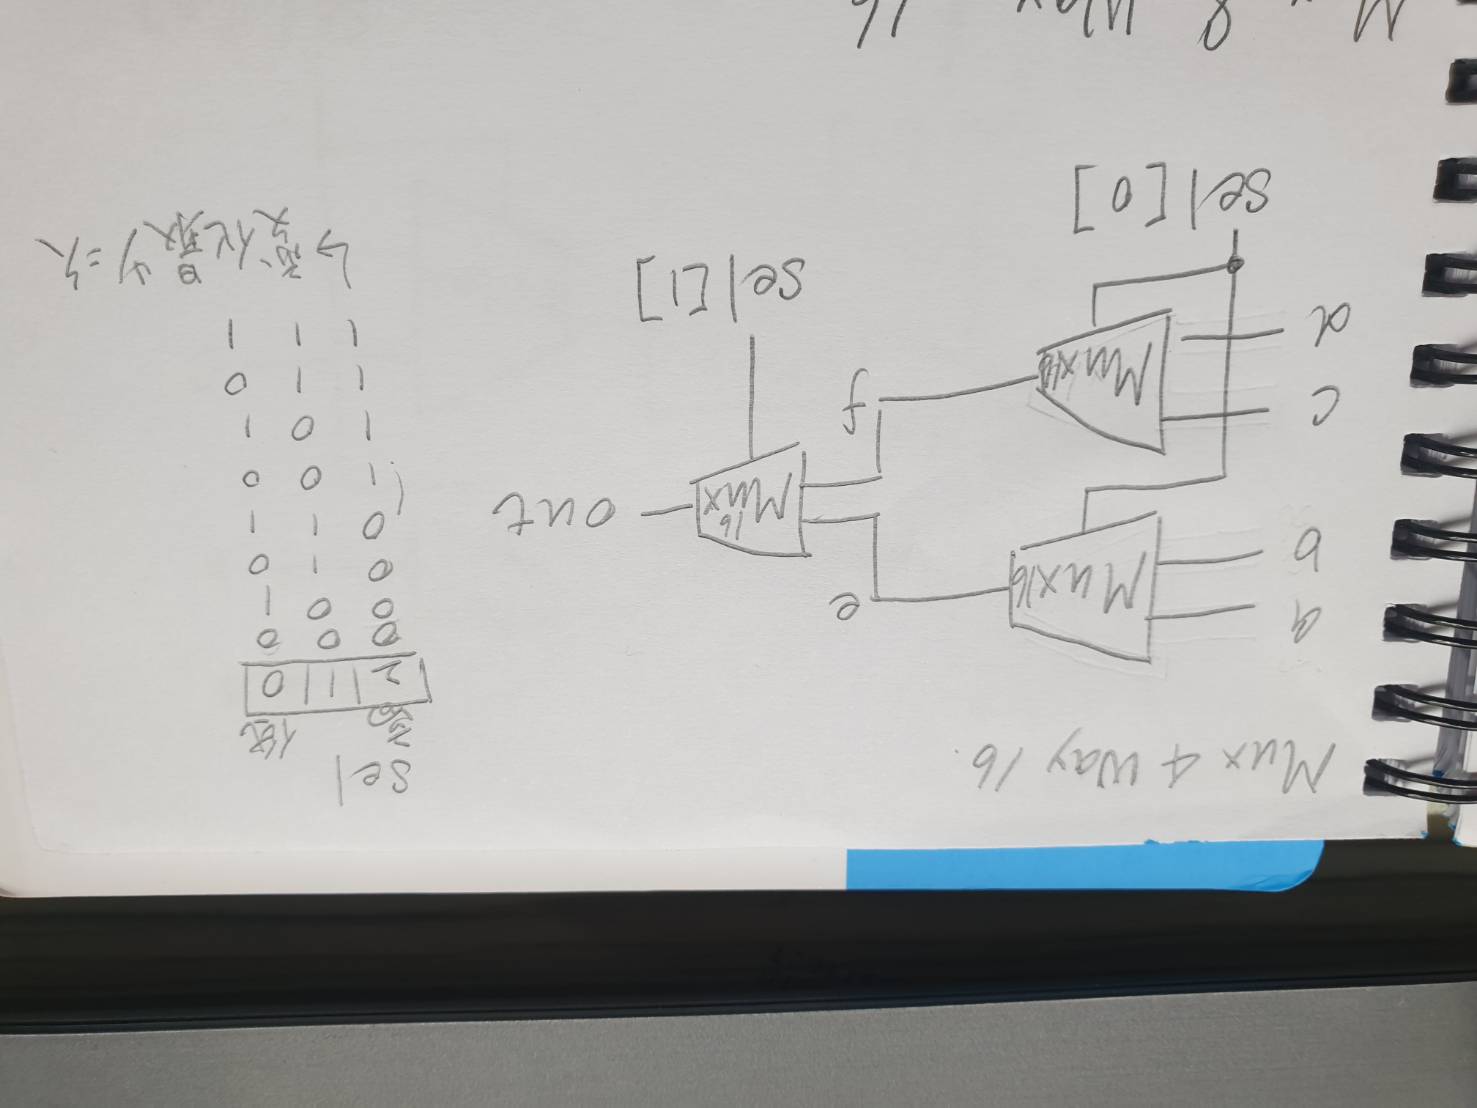 Mux 4 Way 16.
a
b
Mux16
e
c
d
Mux16
f
Mux 16
out
sel[0]
sel[1]
sel
高 低
2 1 0
0 0 0
0 0 1
0 1 0
0 1 1
1 0 0
1 0 1
1 1 0
1 1 1
↳变化最少=次
Mux 8 Way 16